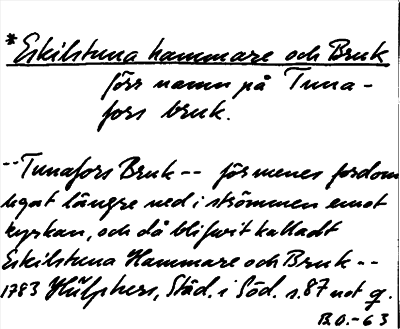 *Eskilstuna hammare och Bruk
förr namn på Tuna-
fors bruk.
--Tunafors Bruk -- förmenes fordom
legat längre ned i strömmen emot
kyrkan, och då blifwit kalladt
Eskilstuna Hammare och Bruk --
1783 Hülphers, Städ. i Söd. s. 87 not q.
B.O.-63